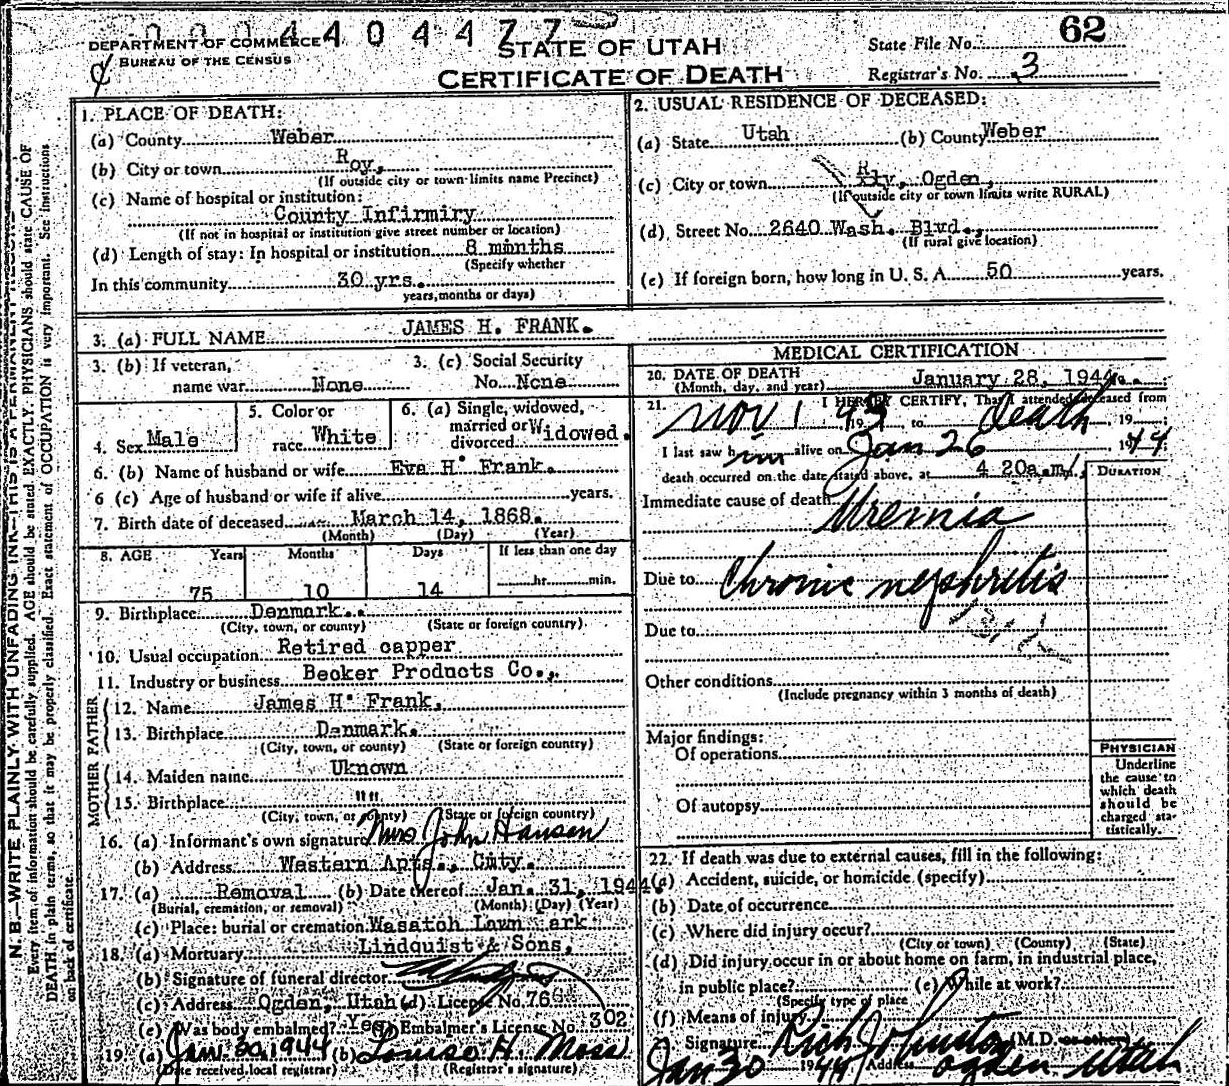 0 0 0 4 4 0 4 4 7 7
DEPARTMENT OF COMMERCE
BUREAU OF THE CENSUS
STATE OF UTAH
CERTIFICATE OF DEATH
State File No. 62
Registrar's No. 3
1. PLACE OF DEATH:
(a) County Weber
(b) City or town Roy,
(If outside city or town limits name Precinct)
(c) Name of hospital or institution:
County Infirmiry
(If not in hospital or institution give street number or location)
(d) Length of stay: In hospital or institution 8 minths
(Specify whether
In this community 30 yrs.
years, months or days)
2. USUAL RESIDENCE OF DECEASED:
(a) State Utah (b) County Weber
(c) City or town Ogden,
(If outside city or town limits write RURAL)
(d) Street No. 2640 Wash. Blvd.,
(If rural give location)
(e) If foreign born, how long in U. S. A. 50 years.
3. (a) FULL NAME JAMES H. FRANK.
3. (b) If veteran,
name war None
3. (c) Social Security
No. None
4. Sex Male
5. Color or
race White
6. (a) Single, widowed,
married or
divorced Widowed.
6. (b) Name of husband or wife Eva H. Frank.
6 (c) Age of husband or wife if alive years.
7. Birth date of deceased March 14, 1868.
(Month) (Day) (Year)
8. AGE Years Months Days If less than one day
75 10 14 hr. min.
9. Birthplace Denmark.
(City, town, or county) (State or foreign country)
10. Usual occupation Retired capper
11. Industry or business Becker Products Co.,
FATHER
12. Name James H. Frank.
13. Birthplace Denmark.
(City, town, or county) (State or foreign country)
MOTHER
14. Maiden name Uknown
15. Birthplace " "
(City, town, or county) (State or foreign country)
16. (a) Informant's own signature Mrs John Hansen
(b) Address Western Apts., City.
17. (a) Removal (b) Date thereof Jan. 31, 1944.
(Burial, cremation, or removal) (Month) (Day) (Year)
(c) Place: burial or cremation Wasatch Lawn ark
18. (a) Mortuary Lindquist & Sons,
(b) Signature of funeral director
(c) Address Ogden, Utah (d) License No. 766
(e) Was body embalmed? Yes (f) Embalmer's License No. 302
19. (a) Jan. 30, 1944 (b) Louise H. Moss
(Date received local registrar) (Registrar's signature)
MEDICAL CERTIFICATION
20. DATE OF DEATH
(Month, day, and year) January 28, 1944.
21. I HEREBY CERTIFY, That I attended deceased from
Nov 1 1943, to death, 19
I last saw him alive on Jan 26 1944
death occurred on the date stated above, at 4 20a.m.
DURATION
Immediate cause of death Uremia
Due to Chronic nephritis
Due to
Other conditions
(Include pregnancy within 3 months of death)
Major findings:
Of operations
Of autopsy
PHYSICIAN
Underline
the cause to
which death
should be
charged sta-
tistically.
22. If death was due to external causes, fill in the following:
(a) Accident, suicide, or homicide (specify)
(b) Date of occurrence
(c) Where did injury occur?
(City or town) (County) (State)
(d) Did injury occur in or about home on farm, in industrial place,
in public place? (e) While at work?
(Specify type of place
(f) Means of injury
23. Signature Rich Johnston (M.D. or other)
Jan 30 1944 Address Ogden Utah
N. B.—WRITE PLAINLY WITH UNFADING INK—THIS IS A PERMANENT RECORD
Every item of information should be carefully supplied. AGE should be stated EXACTLY. PHYSICIANS should state CAUSE OF
DEATH in plain terms, so that it may be properly classified. Exact statement of OCCUPATION is very important. See instructions
on back of certificate.